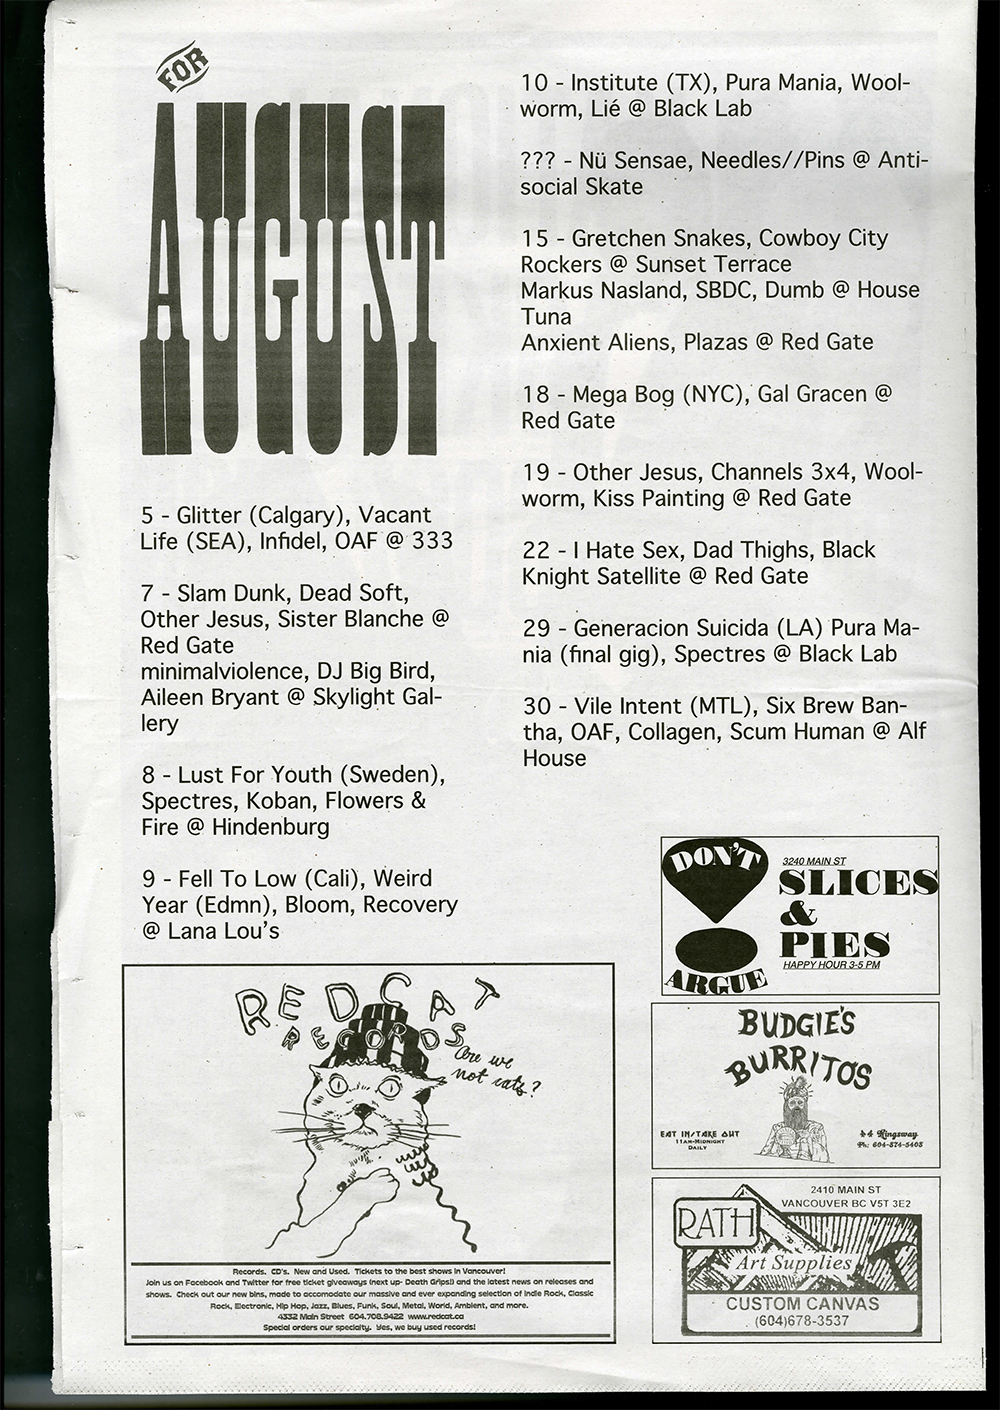 FOR
AUGUST
5 - Glitter (Calgary), Vacant
Life (SEA), Infidel, OAF @ 333
7 - Slam Dunk, Dead Soft,
Other Jesus, Sister Blanche @
Red Gate
minimalviolence, DJ Big Bird,
Aileen Bryant @ Skylight Gal-
lery
8 - Lust For Youth (Sweden),
Spectres, Koban, Flowers &
Fire @ Hindenburg
9 - Fell To Low (Cali), Weird
Year (Edmn), Bloom, Recovery
@ Lana Lou's
10 - Institute (TX), Pura Mania, Wool-
worm, Lié @ Black Lab
??? - Nü Sensae, Needles//Pins @ Anti-
social Skate
15 - Gretchen Snakes, Cowboy City
Rockers @ Sunset Terrace
Markus Nasland, SBDC, Dumb @ House
Tuna
Anxient Aliens, Plazas @ Red Gate
18 - Mega Bog (NYC), Gal Gracen @
Red Gate
19 - Other Jesus, Channels 3x4, Wool-
worm, Kiss Painting @ Red Gate
22 - I Hate Sex, Dad Thighs, Black
Knight Satellite @ Red Gate
29 - Generacion Suicida (LA) Pura Ma-
nia (final gig), Spectres @ Black Lab
30 - Vile Intent (MTL), Six Brew Ban-
tha, OAF, Collagen, Scum Human @ Alf
House
RED CAT
RECORDS
Are we
not cats?
Records. CD's. New and Used. Tickets to the best shows in Vancouver!
Join us on Facebook and Twitter for free ticket giveaways (next up- Death Grips!) and the latest news on releases and
shows. Check out our new bins, made to accomodate our massive and ever expanding selection of Indie Rock, Classic
Rock, Electronic, Hip Hop, Jazz, Blues, Funk, Soul, Metal, World, Ambient, and more.
4332 Main Street 604.708.9422 www.redcat.ca
Special orders our specialty. Yes, we buy used records!
DON'T
ARGUE
3240 MAIN ST
SLICES
&
PIES
HAPPY HOUR 3-5 PM
BUDGIE'S
BURRITOS
EAT IN/TAKE OUT
11AM-MIDNIGHT
DAILY
44 Kingsway
Ph: 604-874-5408
2410 MAIN ST
VANCOUVER BC V5T 3E2
RATH
Art Supplies
CUSTOM CANVAS
(604)678-3537